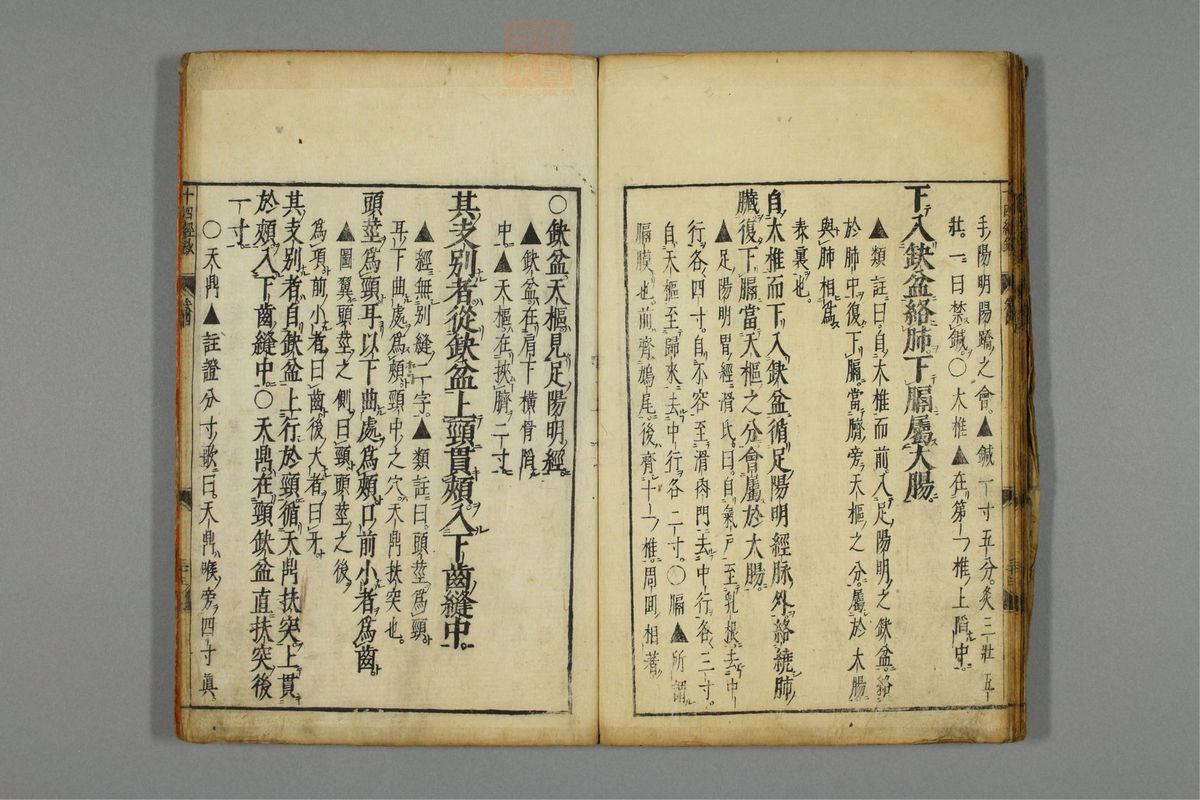 手陽明陽蹻之會▲鍼一寸五分灸三壯五
壯一曰禁鍼○大椎▲在第一椎上陷中
下入缺盆絡肺下膈屬大腸
▲類註曰自大椎而前入足陽明之缺盆絡
於肺中復下膈當臍旁天樞之分屬於大腸
與肺相為
表裏也
自大椎而下入缺盆循足陽明經脉外絡繞肺
臟復下膈當天樞之分會屬於大腸
▲足陽明胃經滑氏曰自氣戶至乳根去中
行各四寸自不容至滑肉門去中行各三寸
自天樞至歸來去中行各二寸○膈▲所謂
膈膜也前齊鳩尾後齊十一椎周囬相著
○缺盆天樞見足陽明經
▲缺盆在肩下橫骨陷
中▲天樞在挾臍二寸
其支別者從缺盆上頸貫頰入下齒縫中
▲經無別縫二字▲類註曰頭莖為頸
耳下曲處為頰頸中之穴天鼎扶突也
頭莖為頸耳以下曲處為頰口前小者為齒
▲圖翼頭莖之側曰頸頭莖之後
為項前小者曰齒後大者曰牙
其支別者自缺盆上行於頸循天鼎扶突上貫
於頰入下齒縫中○天鼎在頸缺盆直扶突後
一寸
○天鼎▲註證分寸歌曰天鼎喉旁四寸真
十四經